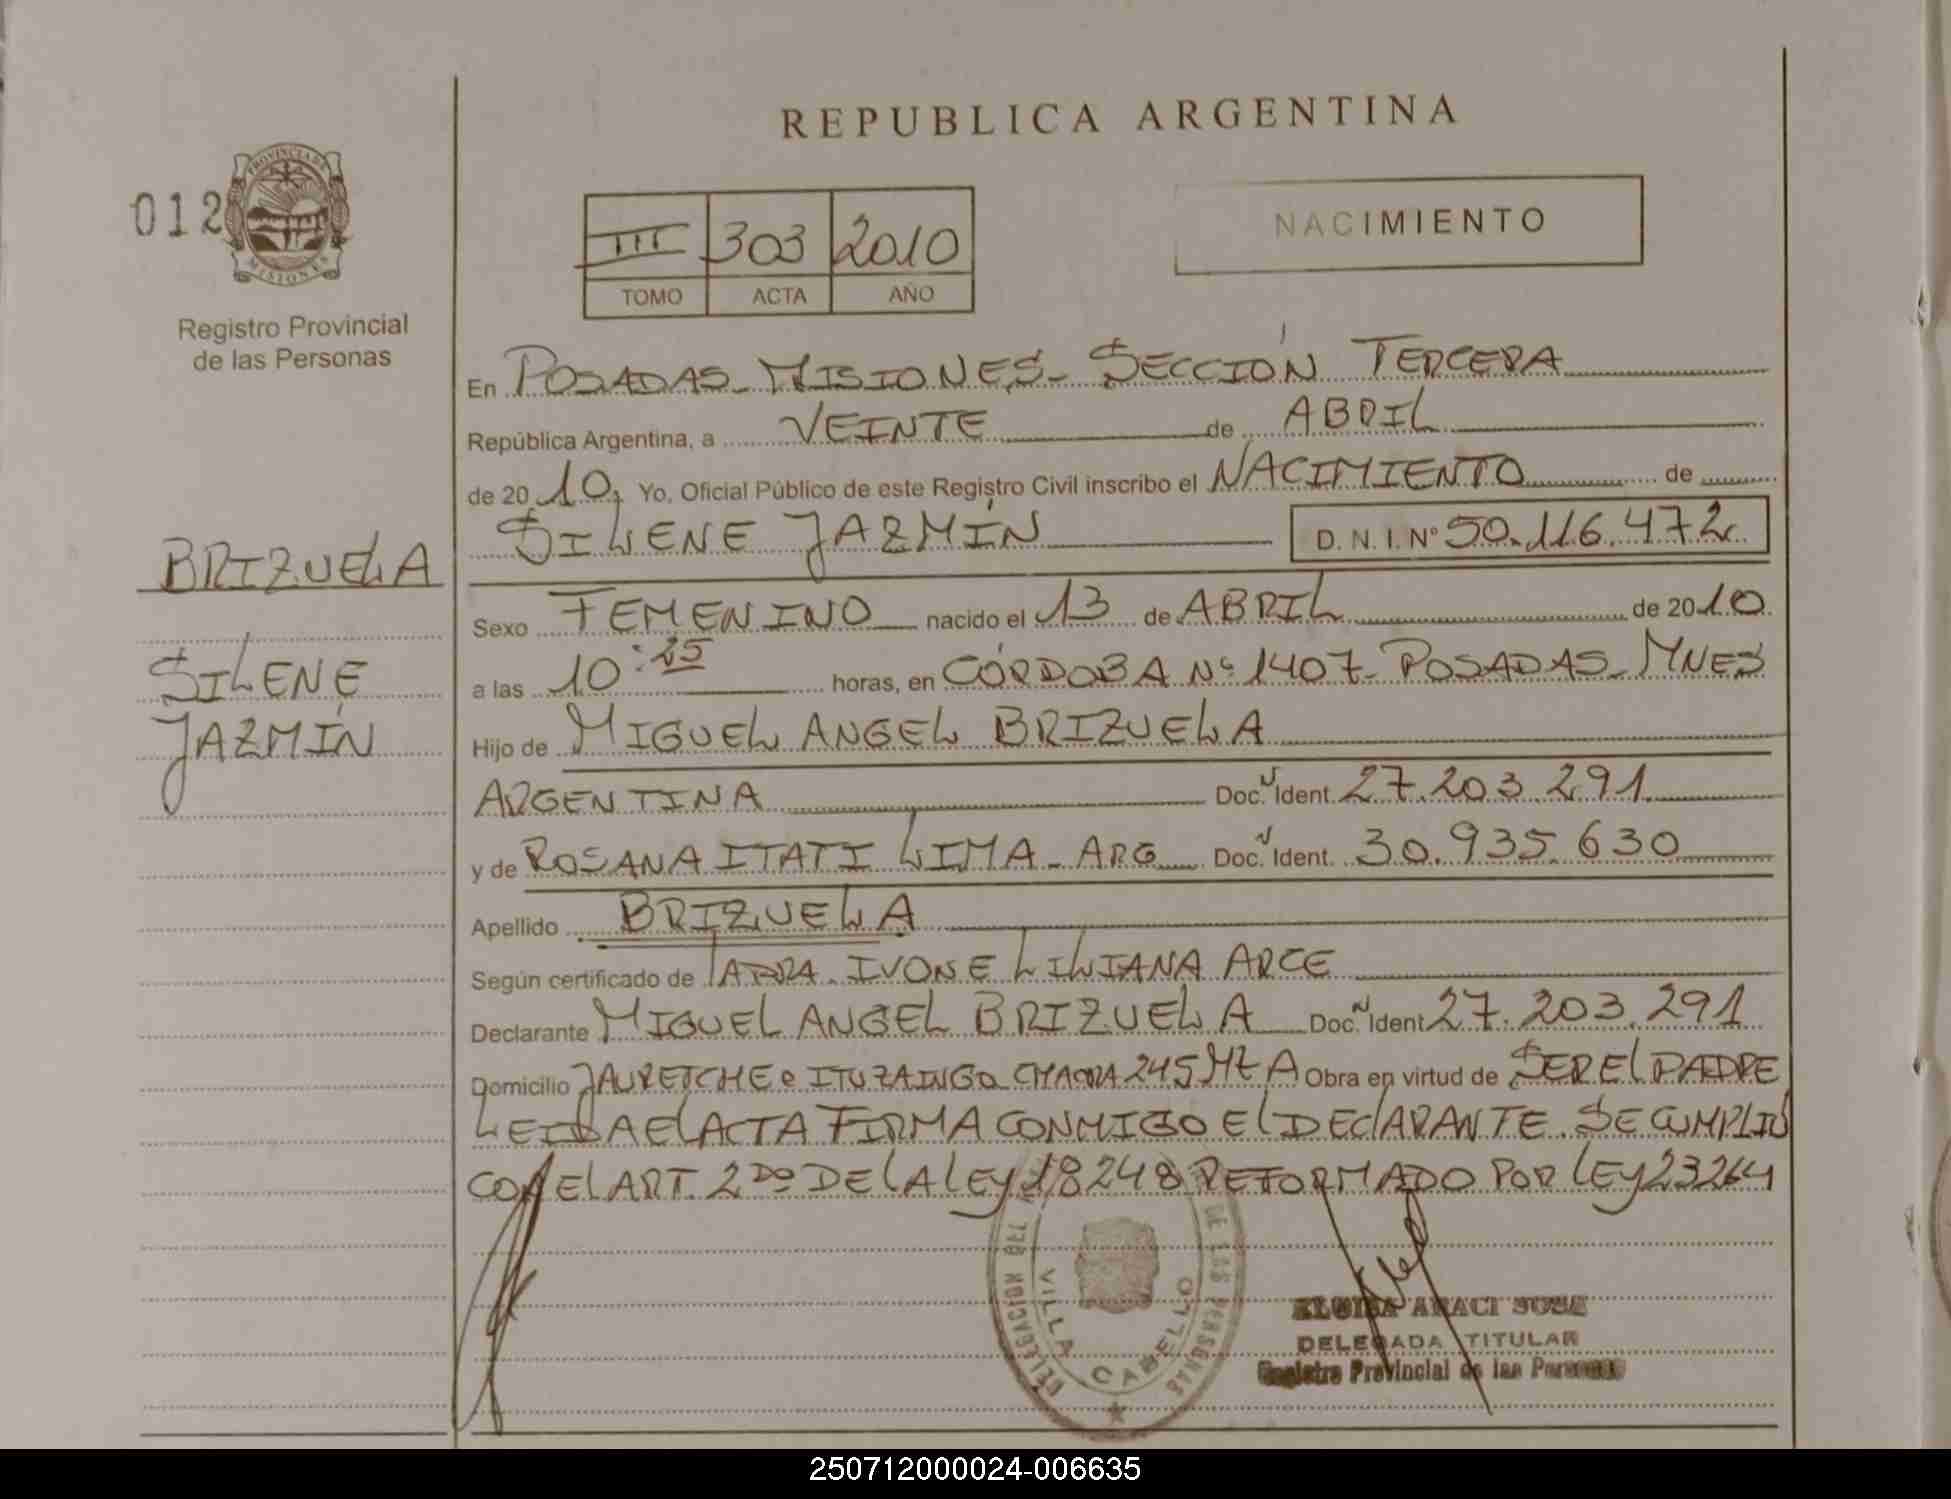 REPUBLICA ARGENTINA
012
PROVINCIA DE
MISIONES
Registro Provincial
de las Personas
III 303 2010
TOMO ACTA AÑO
NACIMIENTO
En POSADAS - MISIONES - SECCIÓN TERCERA
República Argentina, a VEINTE de ABRIL
de 2010, Yo, Oficial Público de este Registro Civil inscribo el NACIMIENTO de
SILENE JAZMÍN D. N. I. Nº 50.116.472
BRIZUELA
SILENE
JAZMÍN
Sexo FEMENINO nacido el 13 de ABRIL de 2010
a las 10:25 horas, en CÓRDOBA Nº 1407 - POSADAS - MNES
Hijo de MIGUEL ANGEL BRIZUELA
ARGENTINA Doc. Ident. 27.203.291
y de ROSANA ITATI LIMA - ARG Doc. Ident. 30.935.630
Apellido BRIZUELA
Según certificado de IVONE LILIANA ARCE
Declarante MIGUEL ANGEL BRIZUELA Doc. Ident 27.203.291
Domicilio JAURETCHE e ITUZAINGO CHACRA 245 MZ A Obra en virtud de SER EL PADRE
LEIDA EL ACTA FIRMA CONMIGO EL DECLARANTE. SE CUMPLIÓ
CON EL ART. 2DO DE LA LEY 18248 REFORMADO POR LEY 23264
DELEGACION DEL
DE LAS PERSONAS
VILLA CABELLO
ARACI JOSE
DELEGADA TITULAR
Registro Provincial de las Personas
250712000024-006635